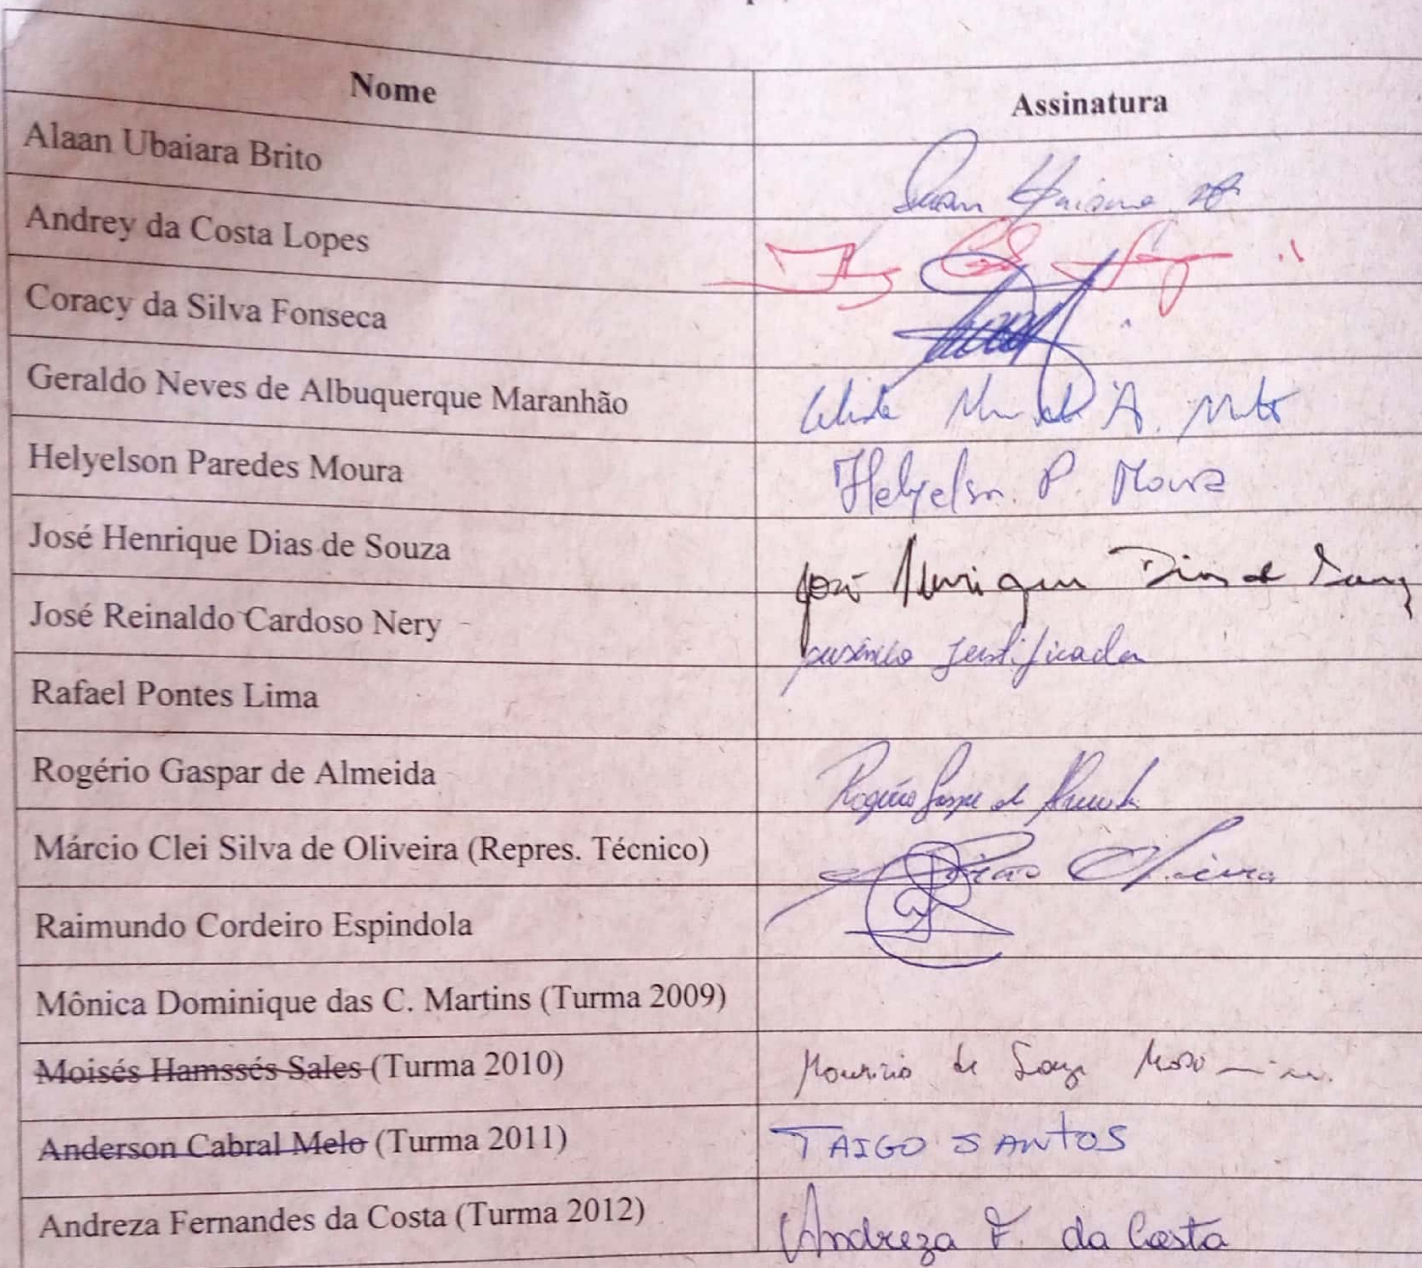 Nome Assinatura
Alaan Ubaiara Brito
Andrey da Costa Lopes
Coracy da Silva Fonseca
Geraldo Neves de Albuquerque Maranhão
Helyelson Paredes Moura Helyelson P. Moura
José Henrique Dias de Souza José Henrique Dias de Souza
José Reinaldo Cardoso Nery ausência justificada
Rafael Pontes Lima
Rogério Gaspar de Almeida Rogério Gaspar de Almeida
Márcio Clei Silva de Oliveira (Repres. Técnico) Oliveira
Raimundo Cordeiro Espindola
Mônica Dominique das C. Martins (Turma 2009)
Moisés Hamssés Sales (Turma 2010) de
Anderson Cabral Melo (Turma 2011) TAIGO SANTOS
Andreza Fernandes da Costa (Turma 2012) Andreza F. da Costa